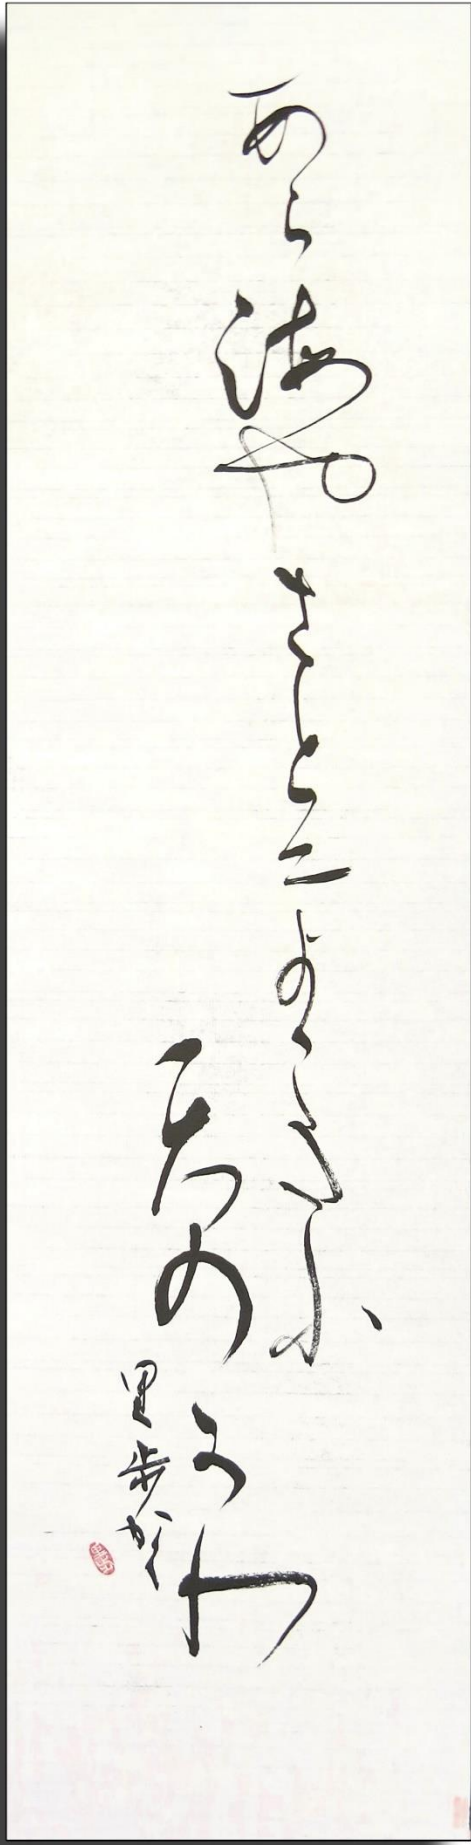 あら海やさとニよこたふ
天のかわ
里歩かく